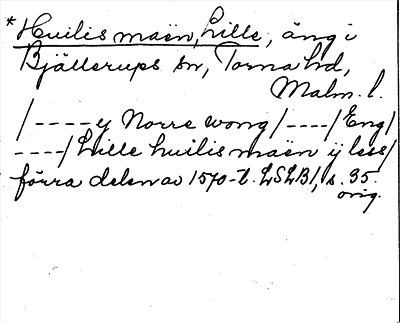 *Huilis maën, Lille, äng i
Bjällerups sn, Torna hd,
Malm. l.
/----y Norre wong/----/Eng/
----/Lille huilis maën ÿ less/
förra delen av 1570-t. LSLB1, s. 35.
orig.